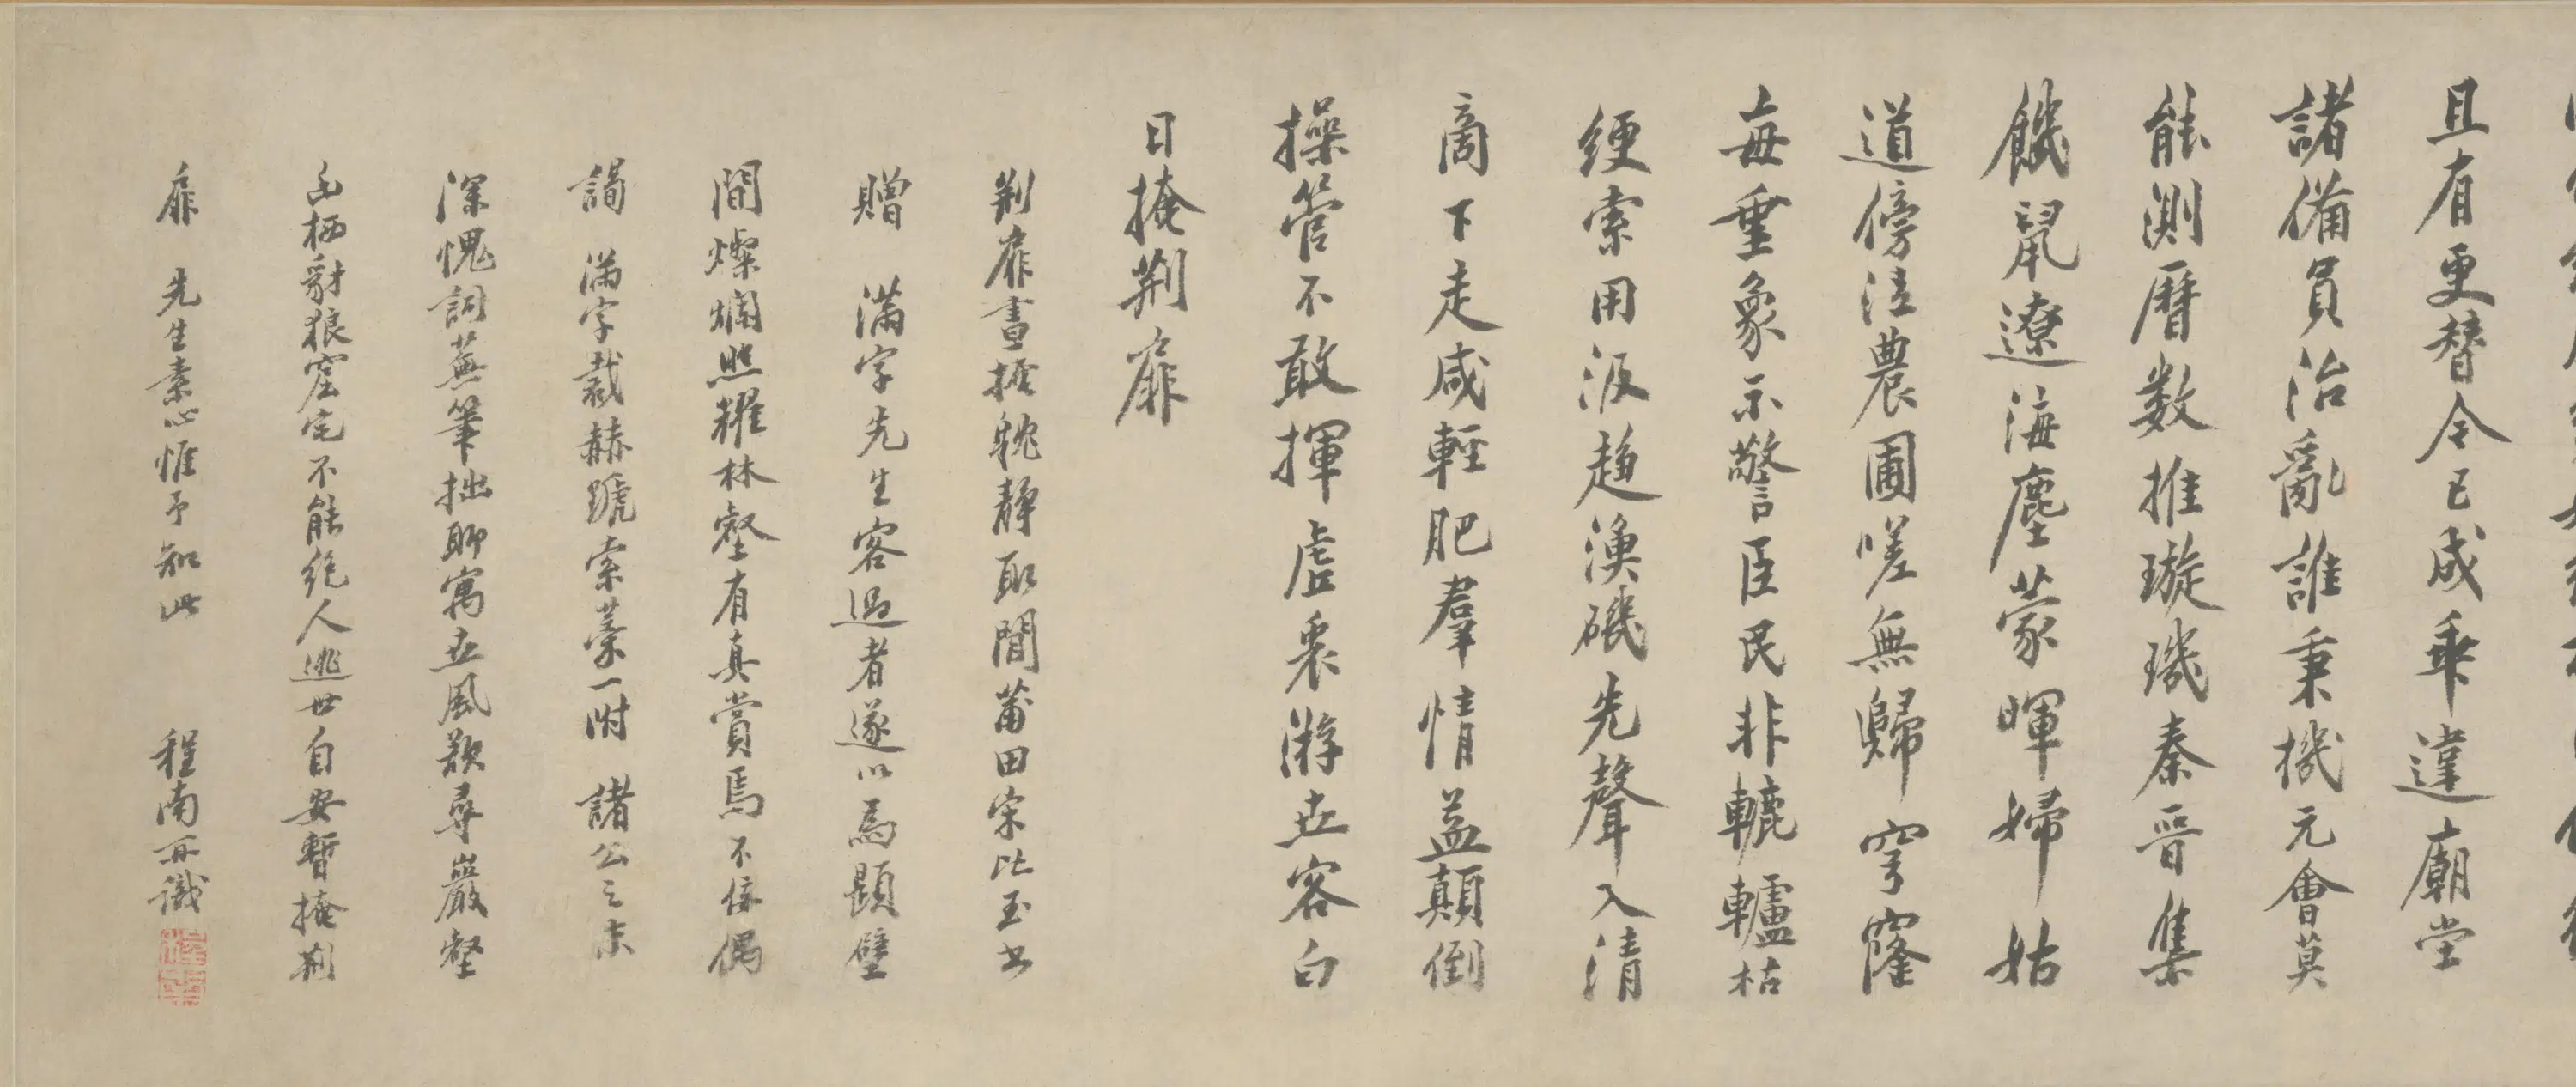 且有更替令已成乖違廟堂
諸備員治亂誰秉機元會莫
能測曆数推璇璣秦晉集
饑鼠遼海塵蒙暉婦姑
道傍泣農圃嗟無歸穹窿
每垂象示警臣民非轆轤枯
綆索用汲趨漁磯先聲入清
商下走咸輕肥羣情益顛倒
操管不敢揮虛乘游世客白
日掩荆扉
荆扉晝掩躭靜取閒莆田宋比玉書
贈 滿字先生客過者遂以爲題壁
間燦爛照耀林壑有真賞焉不佞偶
謁 滿字裁赫號索藁一附 諸公之末
深愧詞蕪筆拙聊寓立風歎尋巖壑
幽栖豺狼窟宅不能絕人逃世自安暫掩荆
扉 先生素心惟予知此 程南再識